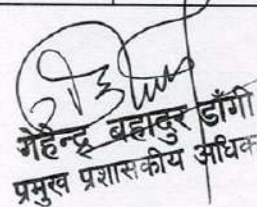 गेहेन्द्र बहादुर डाँगी
प्रमुख प्रशासकीय अधिक